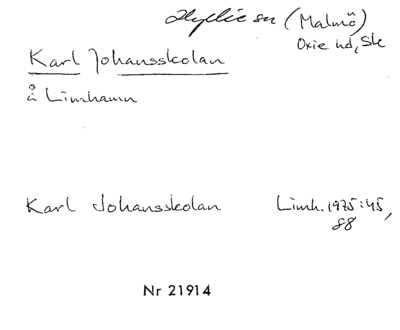 Hyllie sn (Malmö)
Oxie hd, Sk
Karl Johansskolan
å Limhamn
Karl Johansskolan Limh. 1975:45,
88
Nr 21914